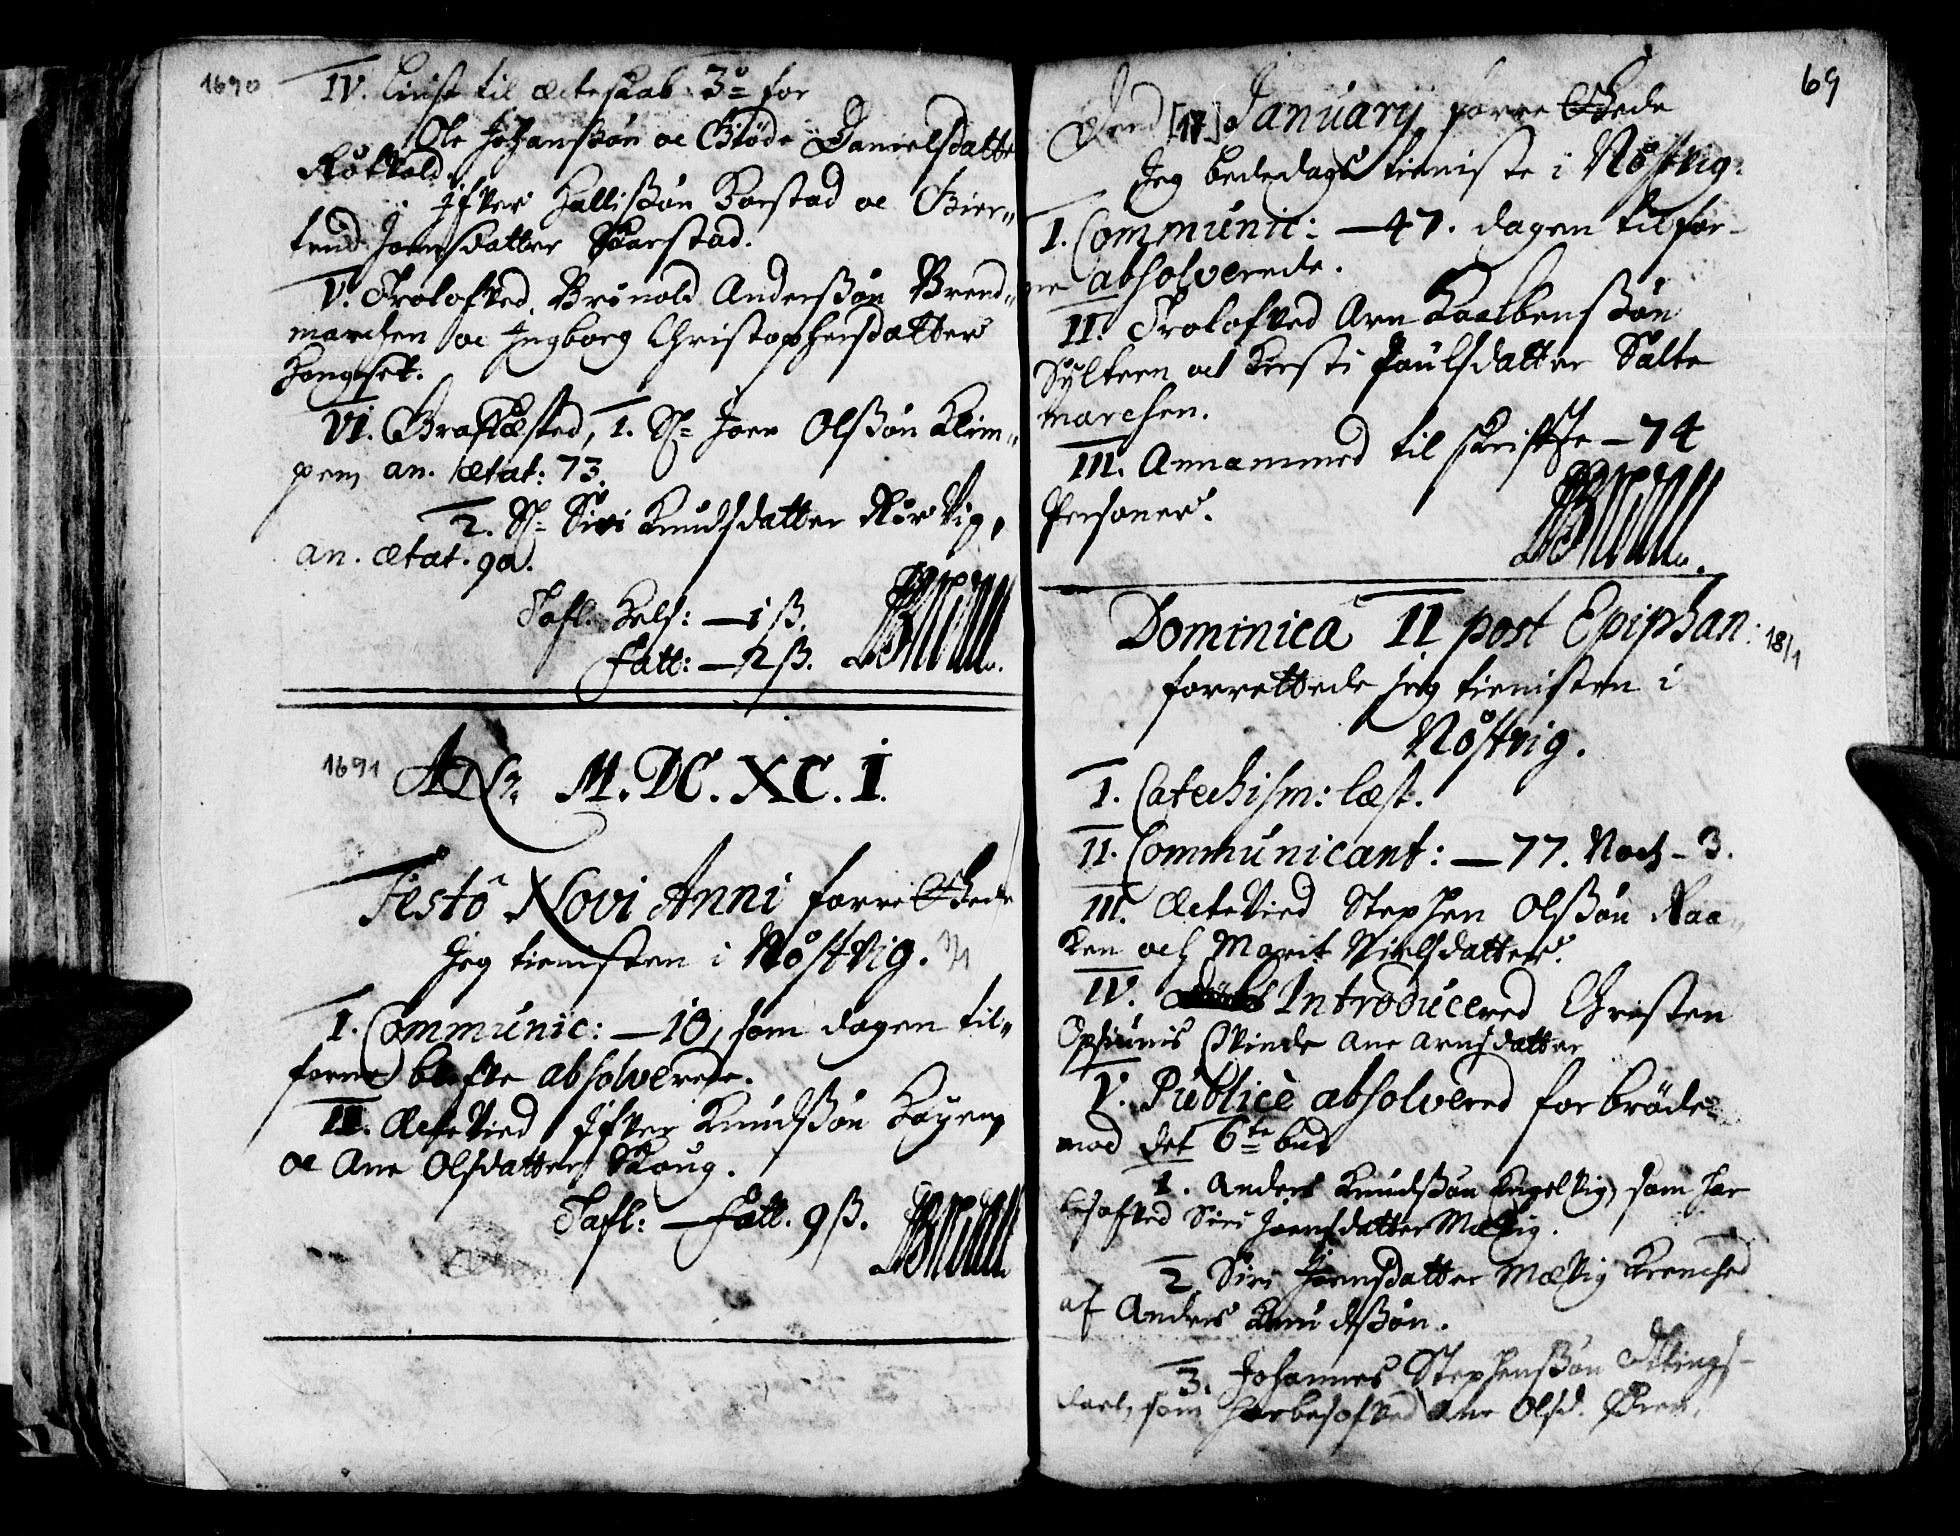 1690
IV. Liust til ecteskab 3o for
Ole Johanßön oc Giöde Danielsdatter
Rötkold.
Ifver Hallißön Karstad oc Gier„
trud Joensdatter Skarstad.
V. Trolofved Brönold Anderßön Brend„
marchen oc Ingborg Christophersdatter
Hongset.
VI. Grafkæsted, 1. Sl. Joen Olßön Klim„
pen an. ætat: 73.
2. Sl. Siri Knudsdatter Rörvig,
an. ætat. 90.
Tafl. Hels: — 1 ß.
Fatt: — 12 ß.
1691
Ao. M.DC.XC.I.
Festô Novi Anni forrettede
Jeg tienisten i Nöstvig. 1/1
I. Communic: — 10, som dagen til„
forne blefve absolverede.
II. Ectevied Ifver Knudßön Høyem
oc Ane Olsdatter Skoug.
Tafl: — Fatt. 9 ß.
69
Dend [17] January forrettede
Jeg bededags tieniste i Nöstvig:
I. Communic: — 47. dagen tilfor-
ne absolverede.
II. Trolofved Arn Kaalbenßön
Sylteen och Kirsti Paulsdatter Salte
marchen.
III. Annammed til skrifte — 74
Personer.
Dominicâ II post Epiphan: 18/1
forrettede jeg tienisten i
Nöstvig.
I. Catechism: læst.
II. Communicant: — 77. Noch - 3.
III. Ectevied Stephen Olßön Raa„
ken och Marit Nielsdatter.
IV. Introducered Christen
Opsiunis Qvinde Ane Arnsdatter
V. Publicè absolvered for bröde
mod det 6te bud
1. Anders Knudßön Engelvig, som har
besofved Siri Joensdatter Mælvig.
2. Siri Joensdatter Mælvig krenched
af Anders Knudßön.
3. Johannes Stephenßön Ottings-
dael, som har besofved Ane Olsd. Ören.